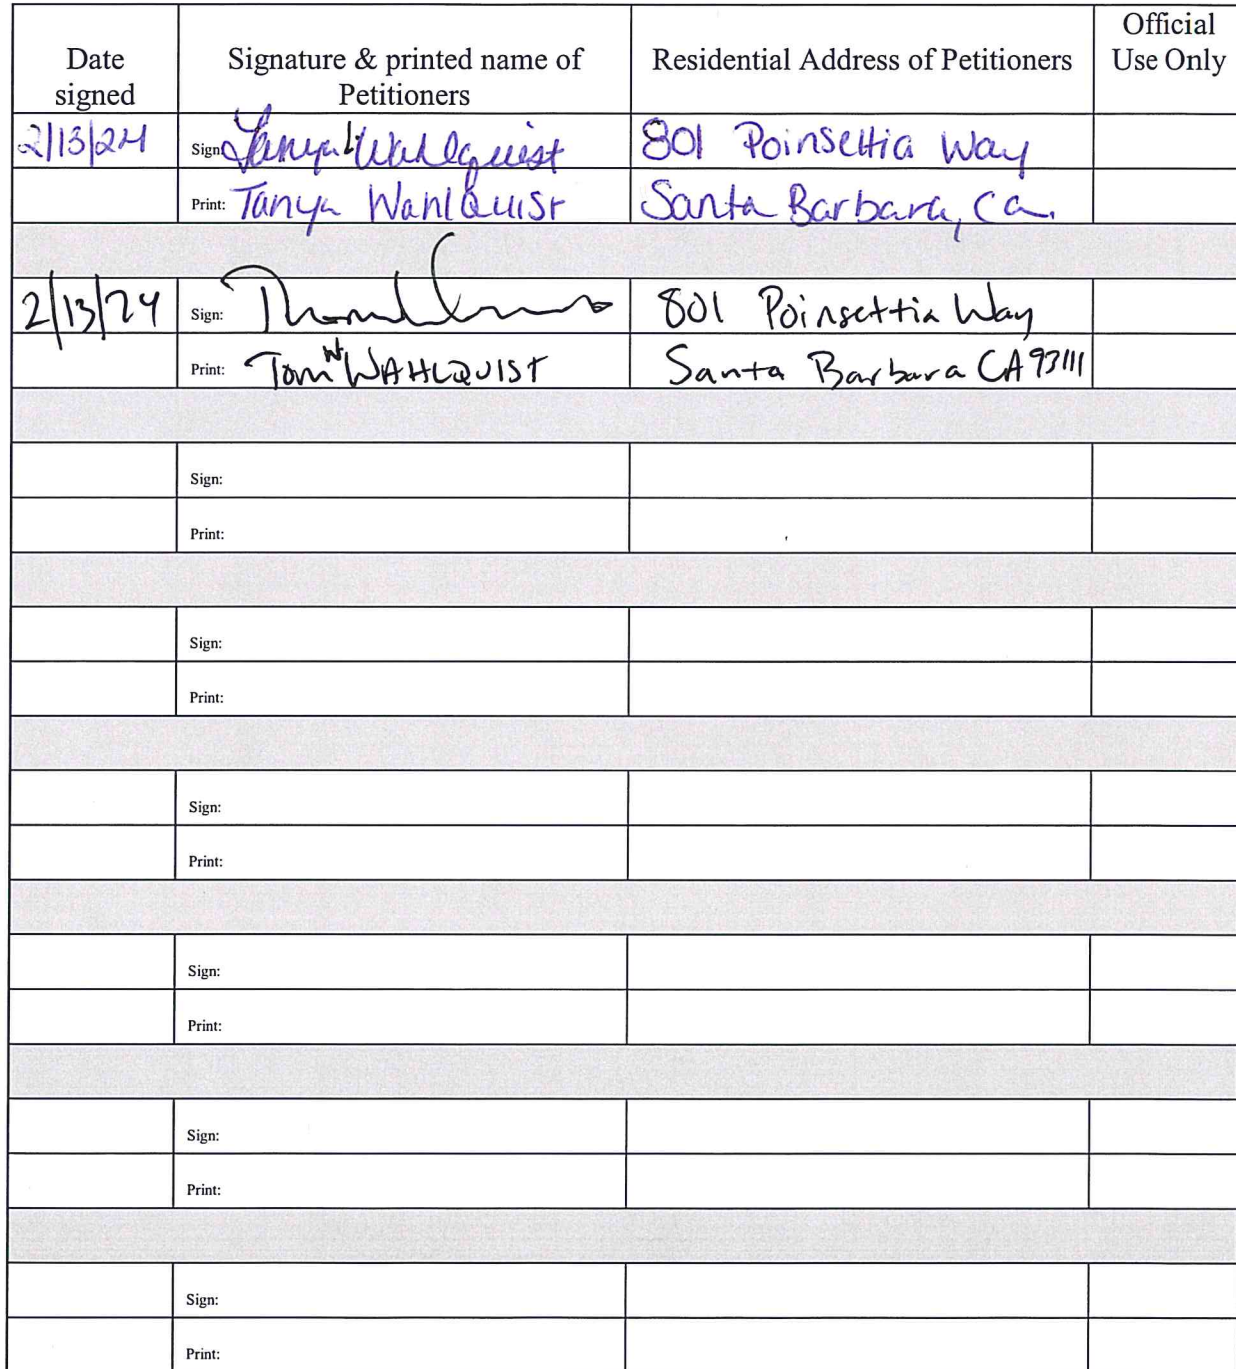 Date signed
Signature & printed name of Petitioners
Residential Address of Petitioners
Official Use Only
2/13/24
Sign: Tanya L Wahlquist
801 Poinsettia Way
Print: Tanya Wahlquist
Santa Barbara, Ca.
2/13/24
Sign:
801 Poinsettia Way
Print: Tom W WAHLQUIST
Santa Barbara CA 93111
Sign:
Print:
Sign:
Print:
Sign:
Print:
Sign:
Print:
Sign:
Print:
Sign:
Print: